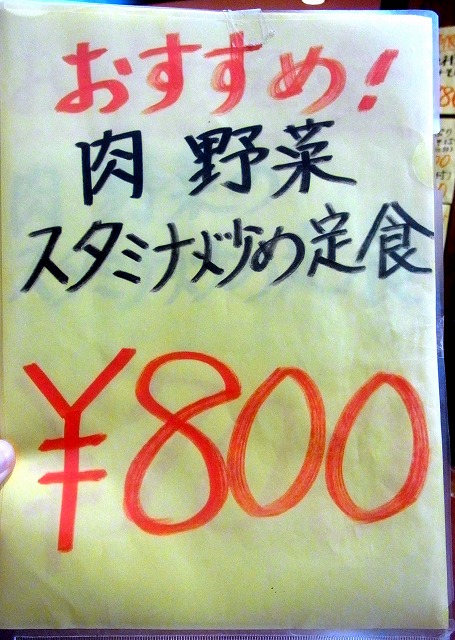 おすすめ!
肉 野菜
スタミナ炒め定食
¥800